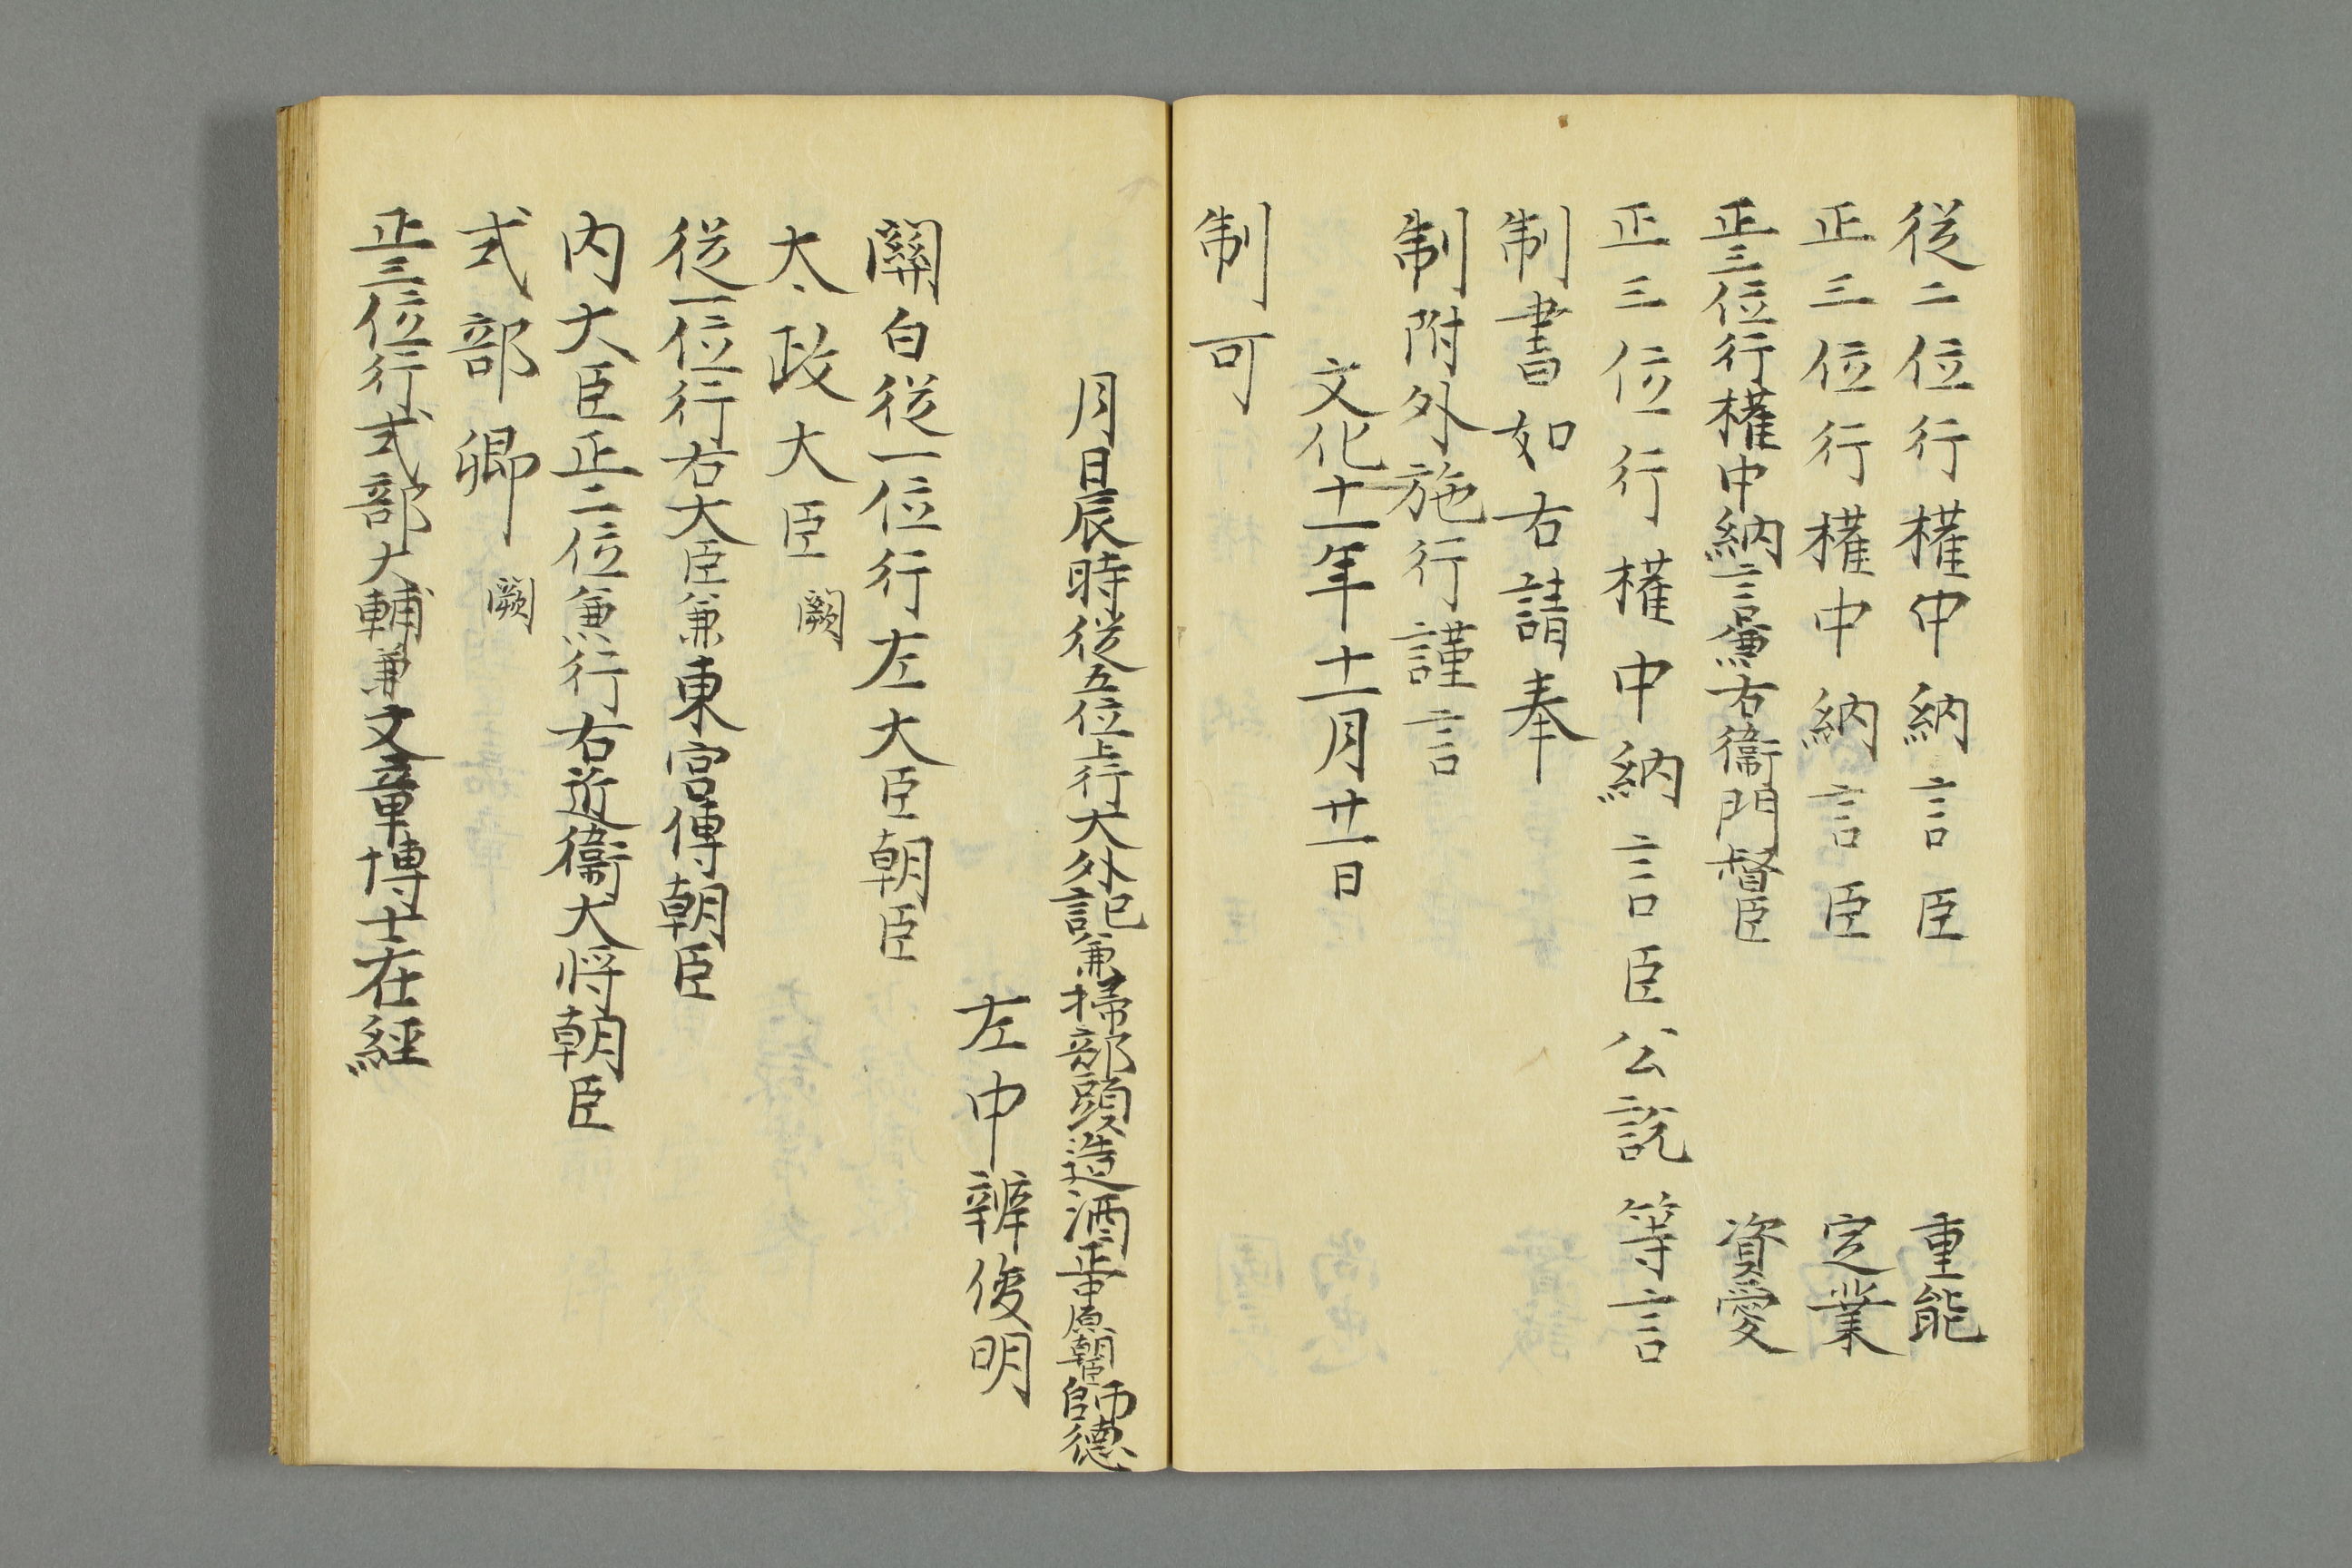 従二位行權中納言臣 重能
正三位行權中納言臣 定業
正三位行權中納言兼右衞門督臣 資愛
正三位行權中納言臣公説等言
制書如右請奉
制附外施行謹言
文化十一年十一月廿一日
制可
月日辰時従五位上行大外記兼掃部頭造酒正中原朝臣師徳
左中辨俊明
關白従一位行左大臣朝臣
太政大臣 闕
従一位行右大臣兼東宮傅朝臣
内大臣正二位兼行右近衞大将朝臣
式部卿 闕
正三位行式部大輔兼文章博士在経